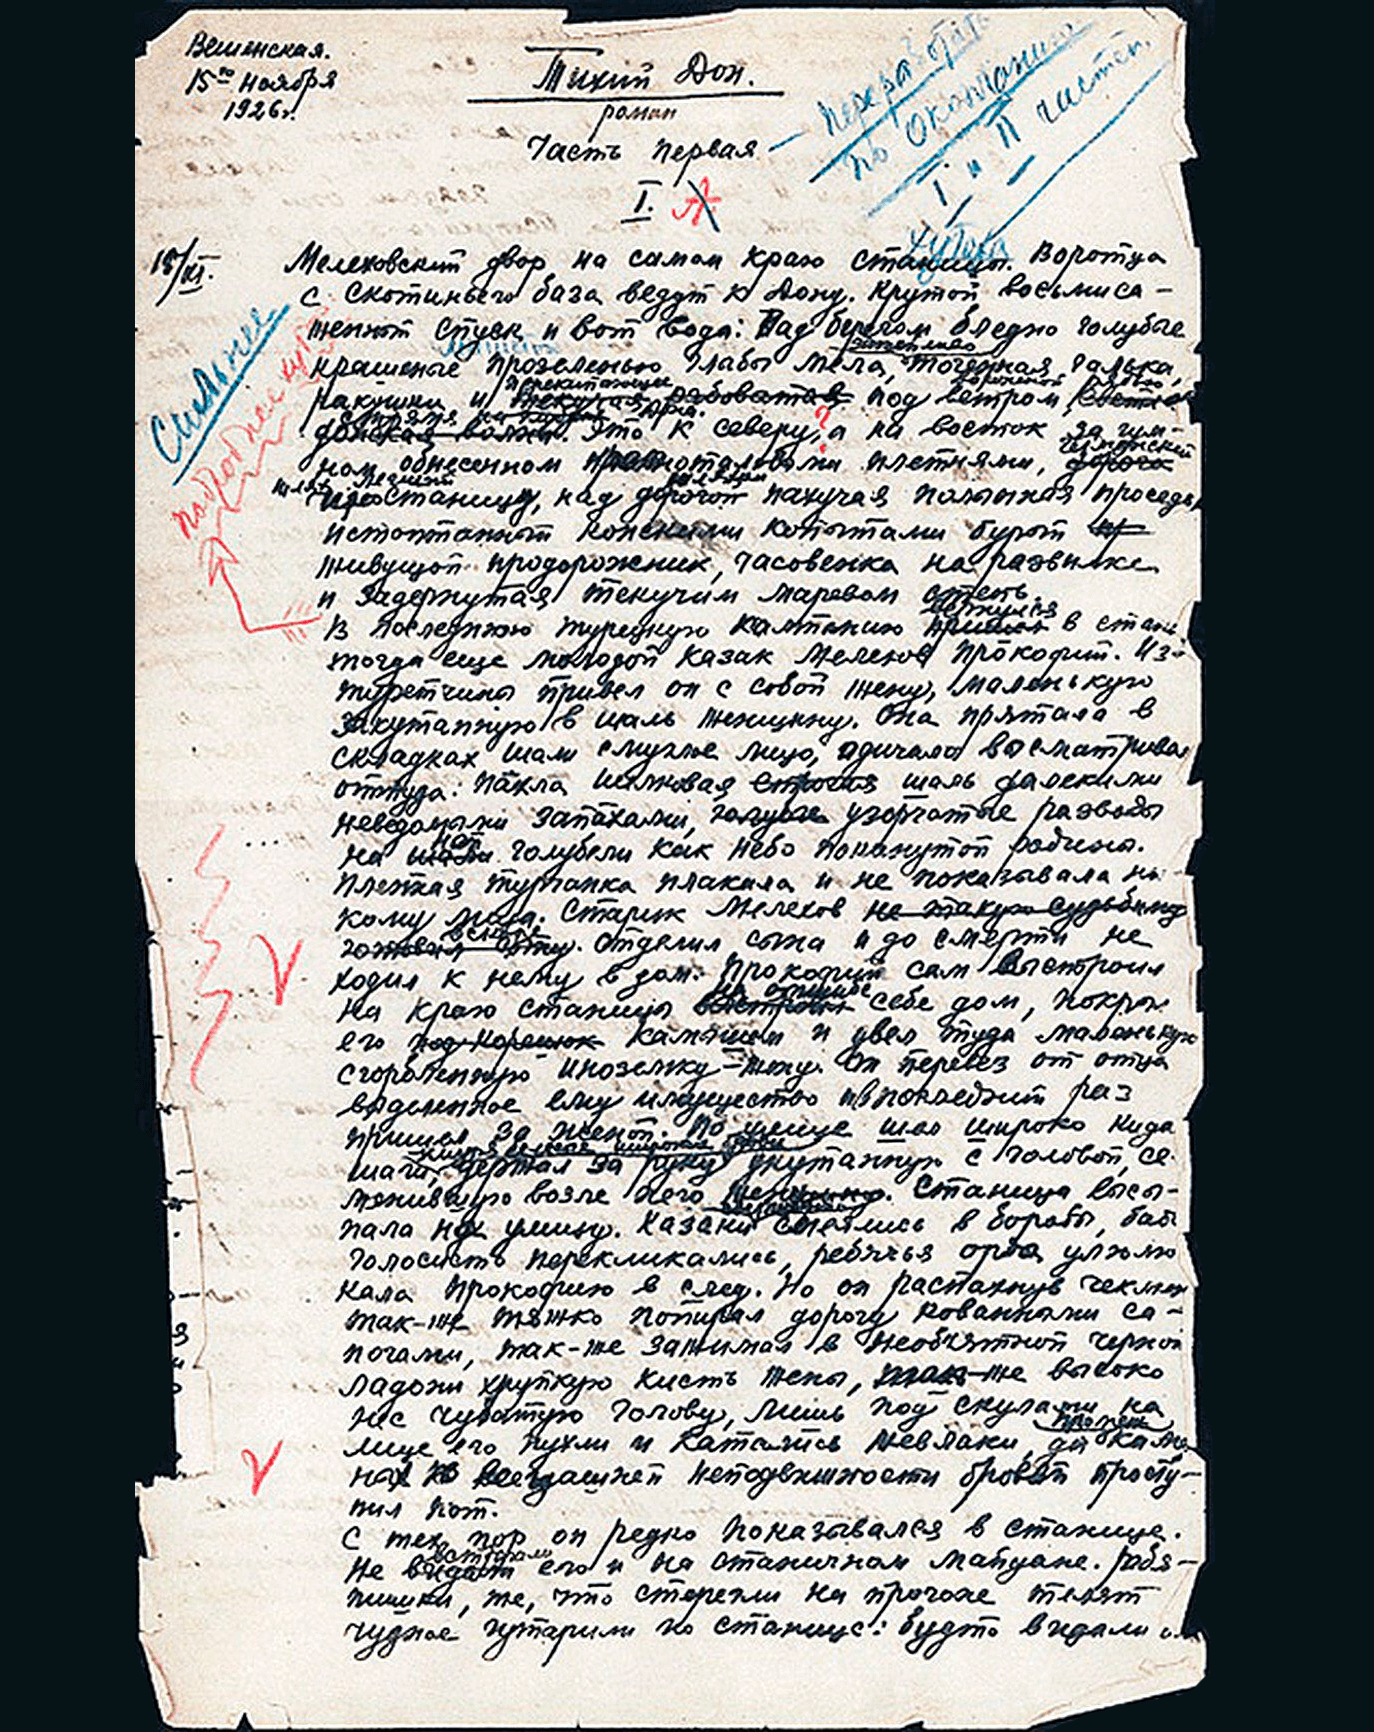 Вешенская.
15го ноября
1926г.
Тихий Дон.
роман
Часть первая
I.
Переработать
по окончании
I и II частей.
15/XI.
хутора
Мелеховский двор на самом краю станицы. Воротца
с скотиньего база ведут к Дону. Крутой восьмиса-
женный спуск и вот вода: Над берегом бледно голубые
крашеные прозеленью глыбы мела, точенная галька,
ракушки и перекатывающие рябоватая под ветром
донская волны. Это к северу, а на восток за гум-
ном обнесенном плетнями,
станицу, над дорогой пахучая полынная проседь,
истоптанный конскими копытами бурый
живущой придорожник, часовенка на развилке
и задернутая текучим маревом степь.
вернулся
В последнюю турецкую кампанию пришел в стан
тогда еще молодой казак Мелехов Прокофий. Из-
туретчины привел он с собой жену, маленькую
закутанную в шаль женщину. Она прятала в
складках шали смуглое лицо, одичало высматривая
оттуда: Пахла шелковая строгая шаль далекими
неведомыми запахами, узорчатые разводы
на шали голубели как небо покинутой родины.
Пленная турчанка плакала и не показывала ни-
кому лица. Старик Мелехов не такую судьбину
готовил сыну. Отделил сына и до смерти не
ходил к нему в дом: Прокофий сам выстроил
на отшибе
на краю станицы выстроил себе дом, покрыл
его камышем и увел туда маленькую
сгорбленную иноземку-жену. Он перевез от отца
выделенное ему имущество и в последний раз
пришел за женой. По улице шел широко кидая
шаги, держал за руку укутанную с головой, се-
менившую возле него женщину. Станица высы-
пала на улицу. Казаки смеялись в бороды, бабы
голосисто перекликались, ребячья орда улюлю
кала Прокофию в след. Но он распахнув чекмен
так-же тяжко попирал дорогу кованными са-
погами, так-же зажимал в необъятной черной
ладони хрупкую кисть жены, так-же высоко
нес чубатую голову, лишь под скулами на
лице его пухли и катались желваки, да
на всегдашней неподвижности бровей просту-
пил пот.
С тех пор он редко показывался в станице.
встречали
Не видали его и на станичном майдане. Ребя-
тишки, же, что стерегли на прогоне телят
чудное гутарили по станице: будто видали
Сильнее
подробнее